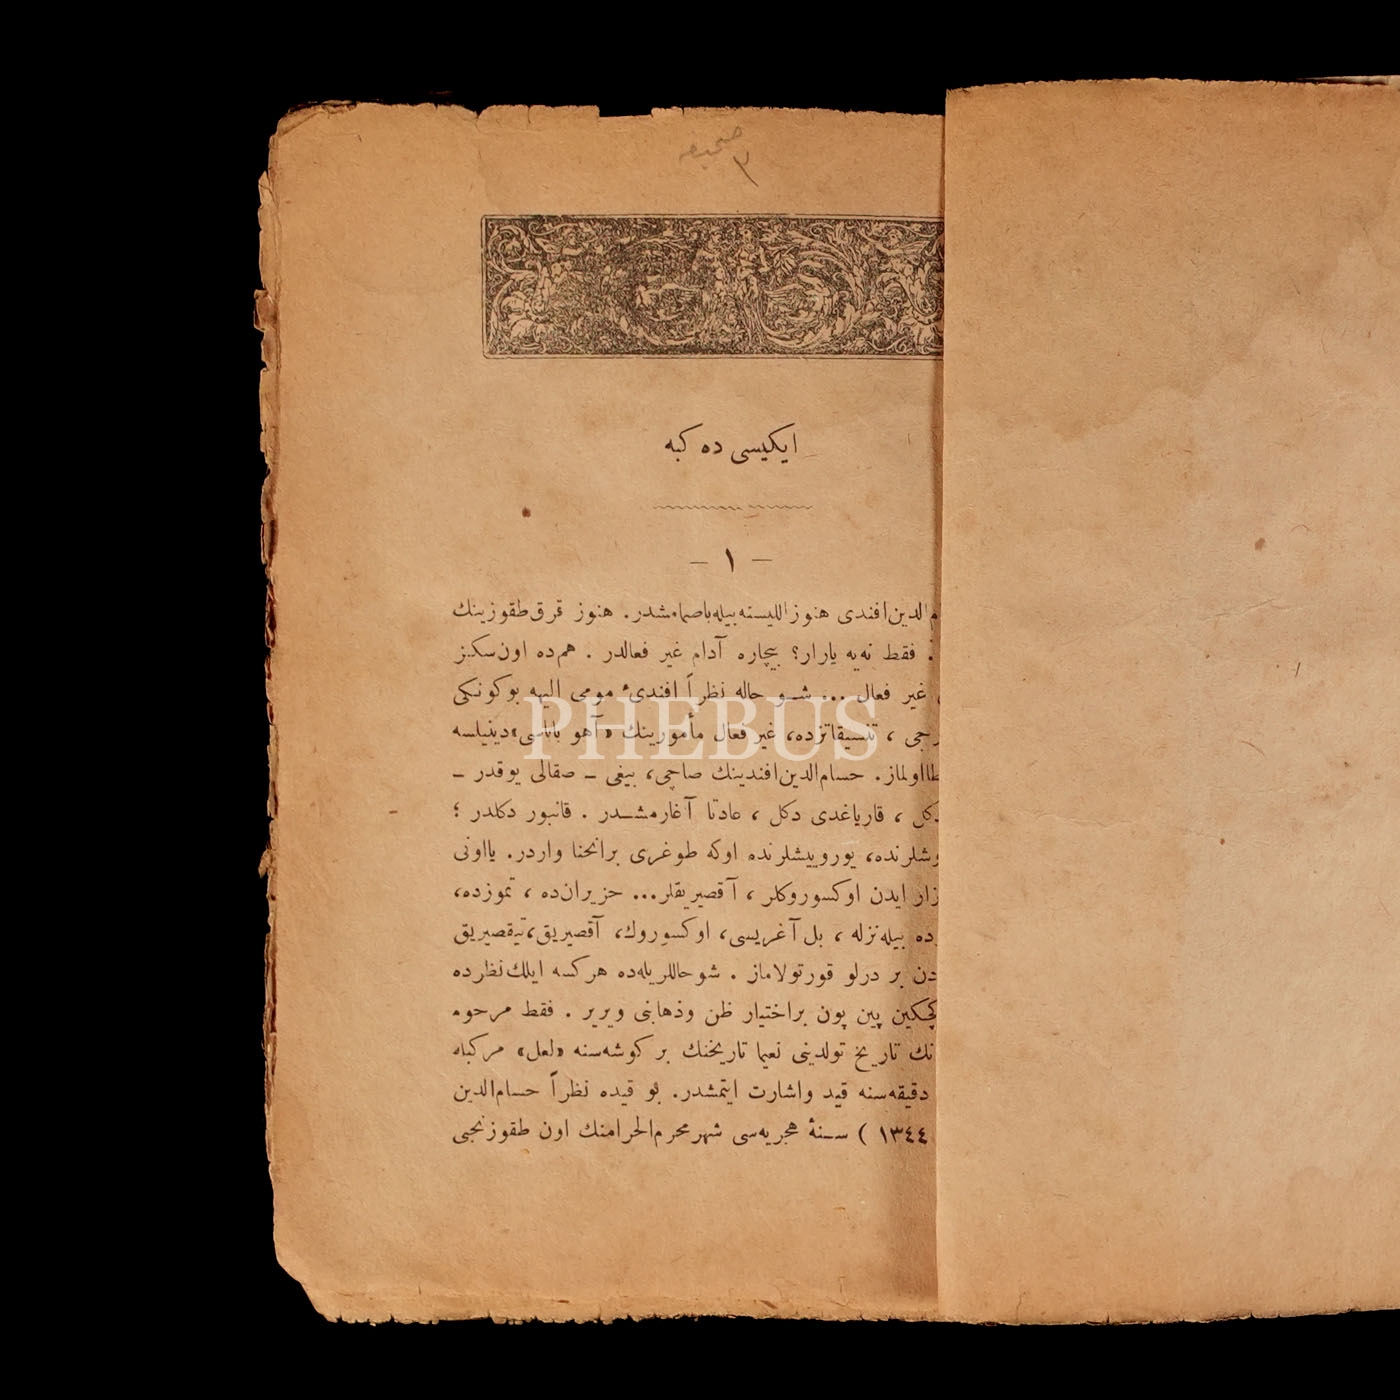 صحیفه
٣
ایكیسی ده كبه
— ١ —
الدین افندی هنوز اللیسنه بیله باصمامشدر. هنوز قرق طقوزینك
. فقط نه یه یارار؟ بیچاره آدام غیر فعالدر . هم ده اون سكز
غیر فعال ... شو حاله نظراً افندیٔ مومی الیهه بوكونكی
، تنسیقاتزده، غیر فعال مأمورینك «آهو باباسی» دینیلسه
اولماز. حسام الدین افندینك صاچی، بیغی ـ صقالی یوقدر ـ
دكل ، قار یاغدی دكل ، عادتا آغارمشدر . قانبور دكلدر ؛
یورویشلرنده اوكه طوغری بر انحنا واردر. یا اونی
ایدن اوكسوروكلر ، آقصیریقلر... حزیران ده ، تموزده،
ده بیله نزله ، بل آغریسی، اوكسوروك، آقصیریق، تیقصیریق
دن بر درلو قورتولاماز . شو حاللریله ده هركسه ایلك نظرده
كچكین پین پون بر اختیار ظن وذهابنی ویریر . فقط مرحوم
نك تاریخ تولدینی نعیما تاریخنك بر كوشه سنه «لعل» مركبله
دقیقه سنه قید واشارت ایتمشدر. بو قیده نظراً حسام الدین
١٣٤٤ ) سنهٔ هجریه سی شهر محرم الحرامنك اون طقوزنجی
PHEBUS